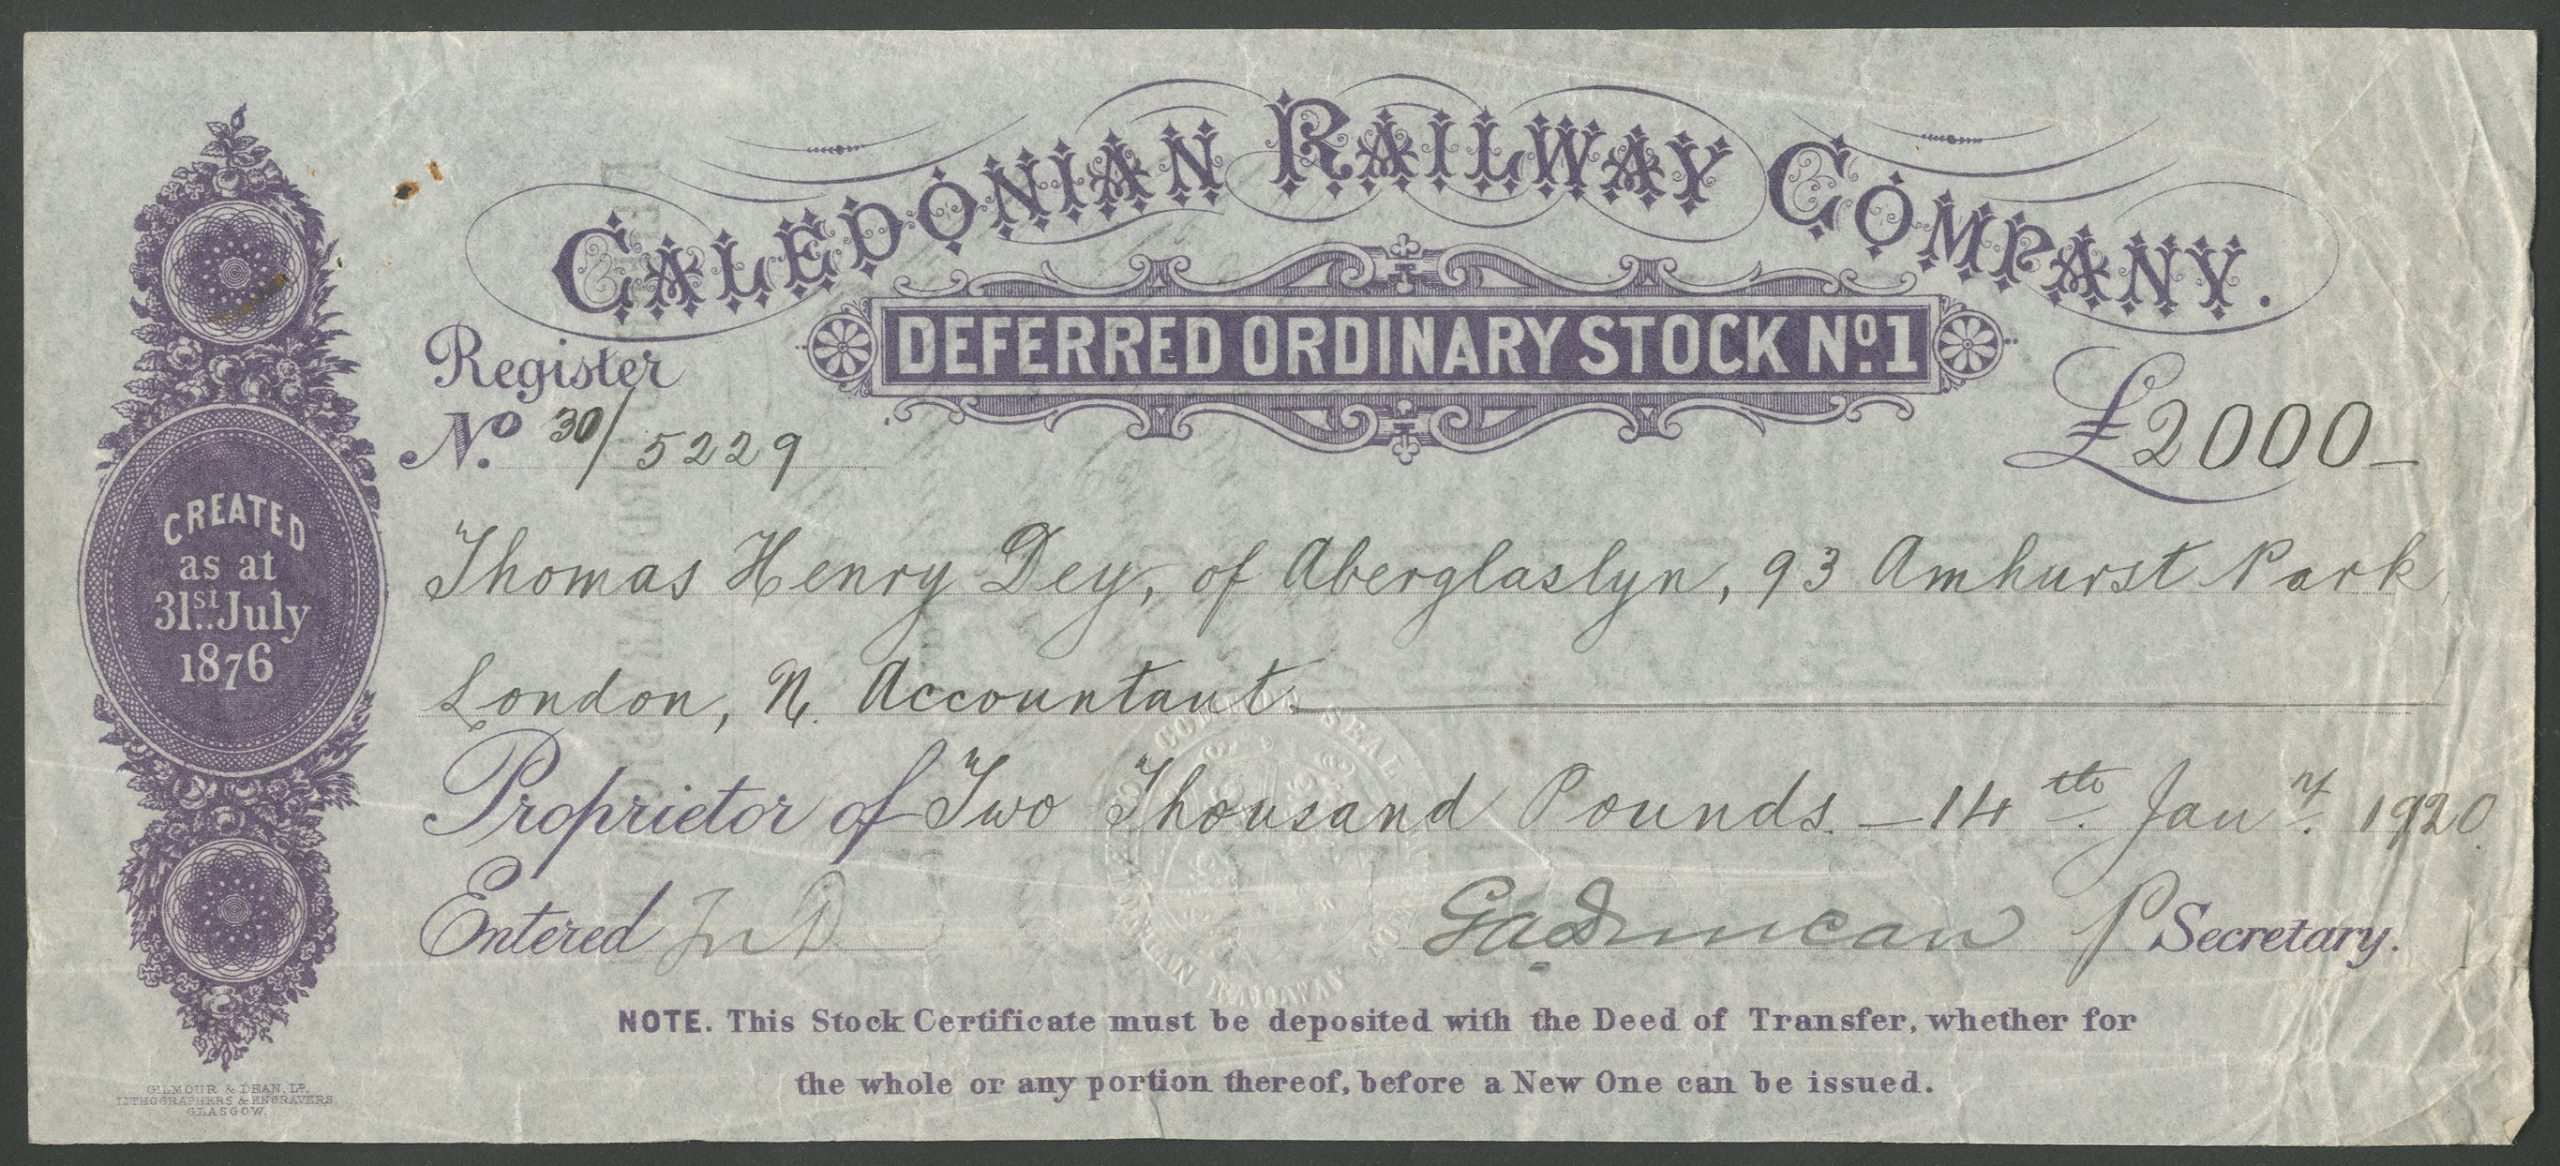 CALEDONIAN RAILWAY COMPANY.
DEFERRED ORDINARY STOCK No. 1
Register
No. 30/5229
£2000-
CREATED
as at
31st July
1876
Thomas Henry Dey, of Aberglaslyn, 93 Amhurst Park,
London, N. Accountant
Proprietor of Two Thousand Pounds. - 14th Jany. 1920.
Entered
GaDuncan p Secretary.
COMMON SEAL
CALEDONIAN RAILWAY
NOTE. This Stock Certificate must be deposited with the Deed of Transfer, whether for
the whole or any portion thereof, before a New One can be issued.
GILMOUR & DEAN, LD.
LITHOGRAPHERS & ENGRAVERS,
GLASGOW.